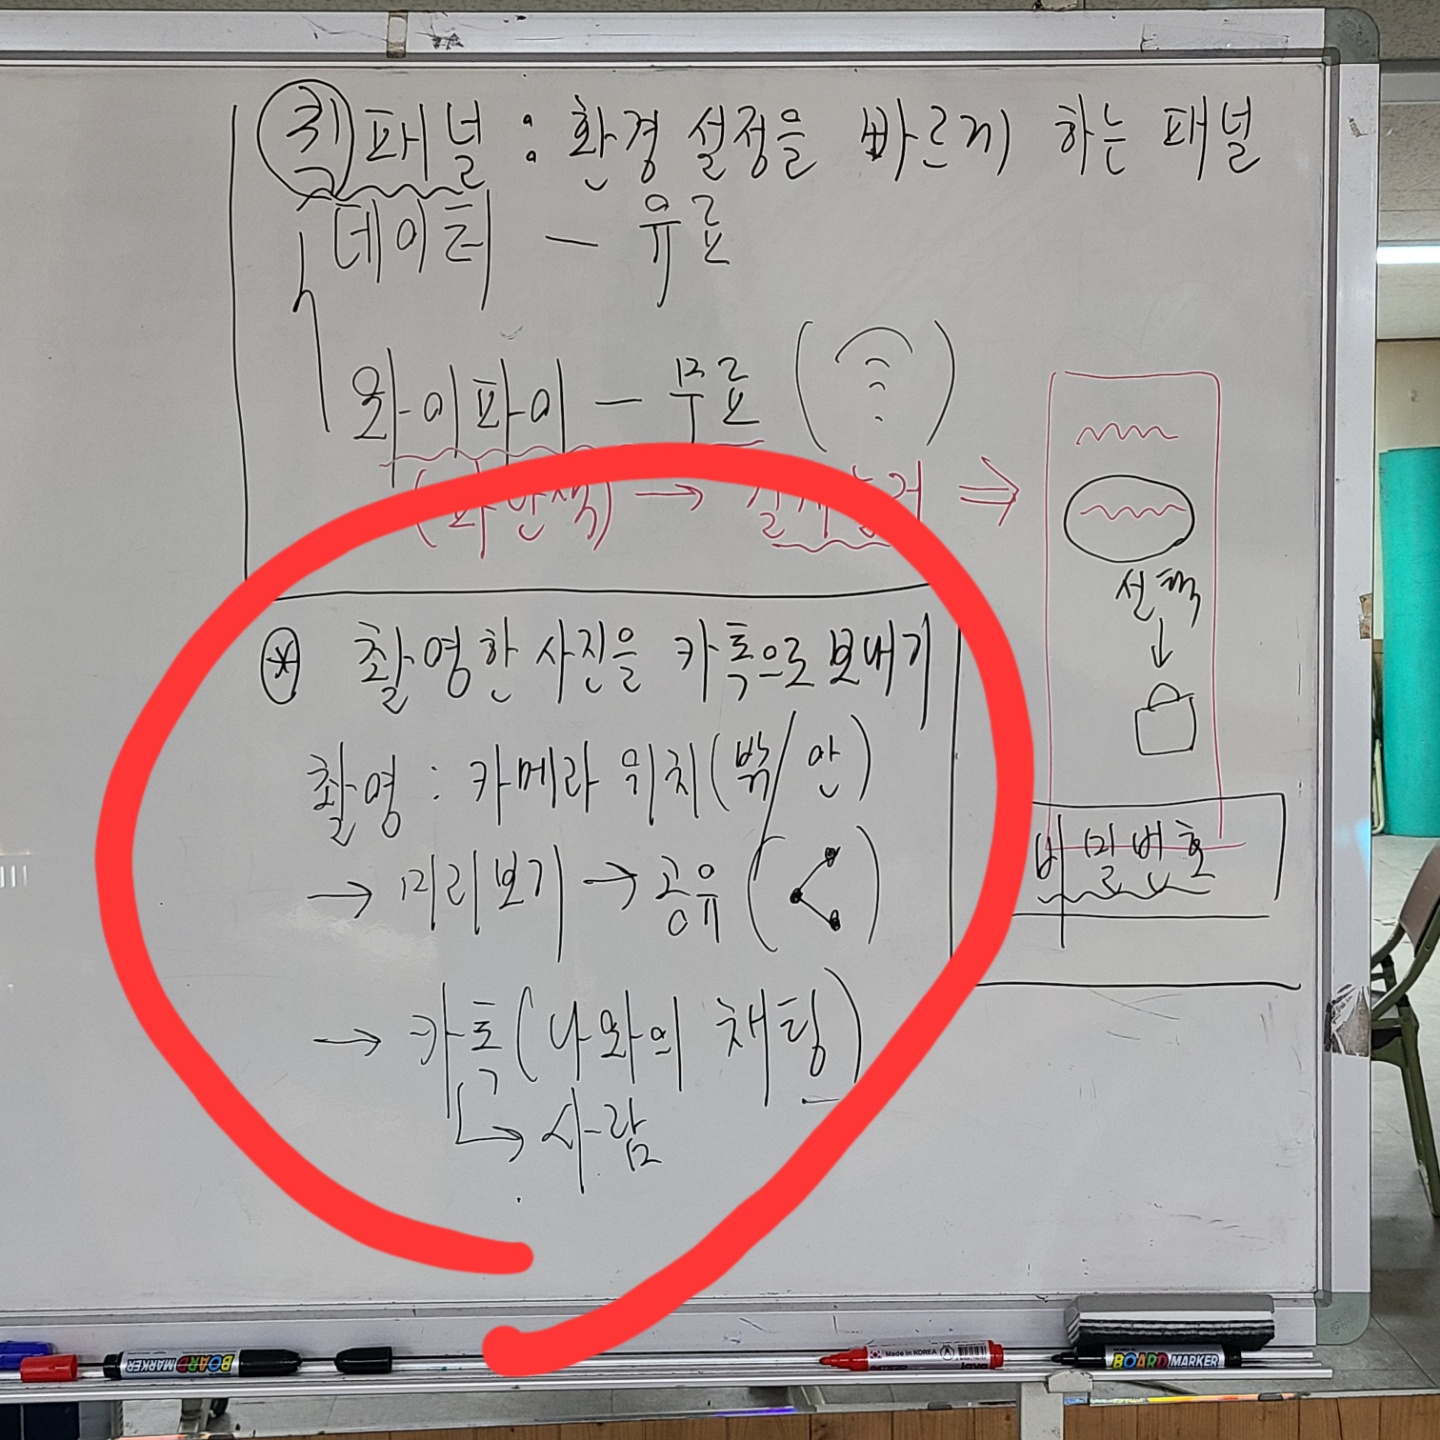 퀵패널 : 환경 설정을 빠르게 하는 패널
데이터 - 유료
와이파이 - 무료
(파란색) → 길게
선택
↓
비밀번호
⊛ 촬영한 사진을 카톡으로 보내기
촬영 : 카메라 위치(밖/안)
→ 미리보기 → 공유
→ 카톡(나와의 채팅)
↳ 사람
BOARD MARKER
Made in KOREA
Java
BOARD MARKER